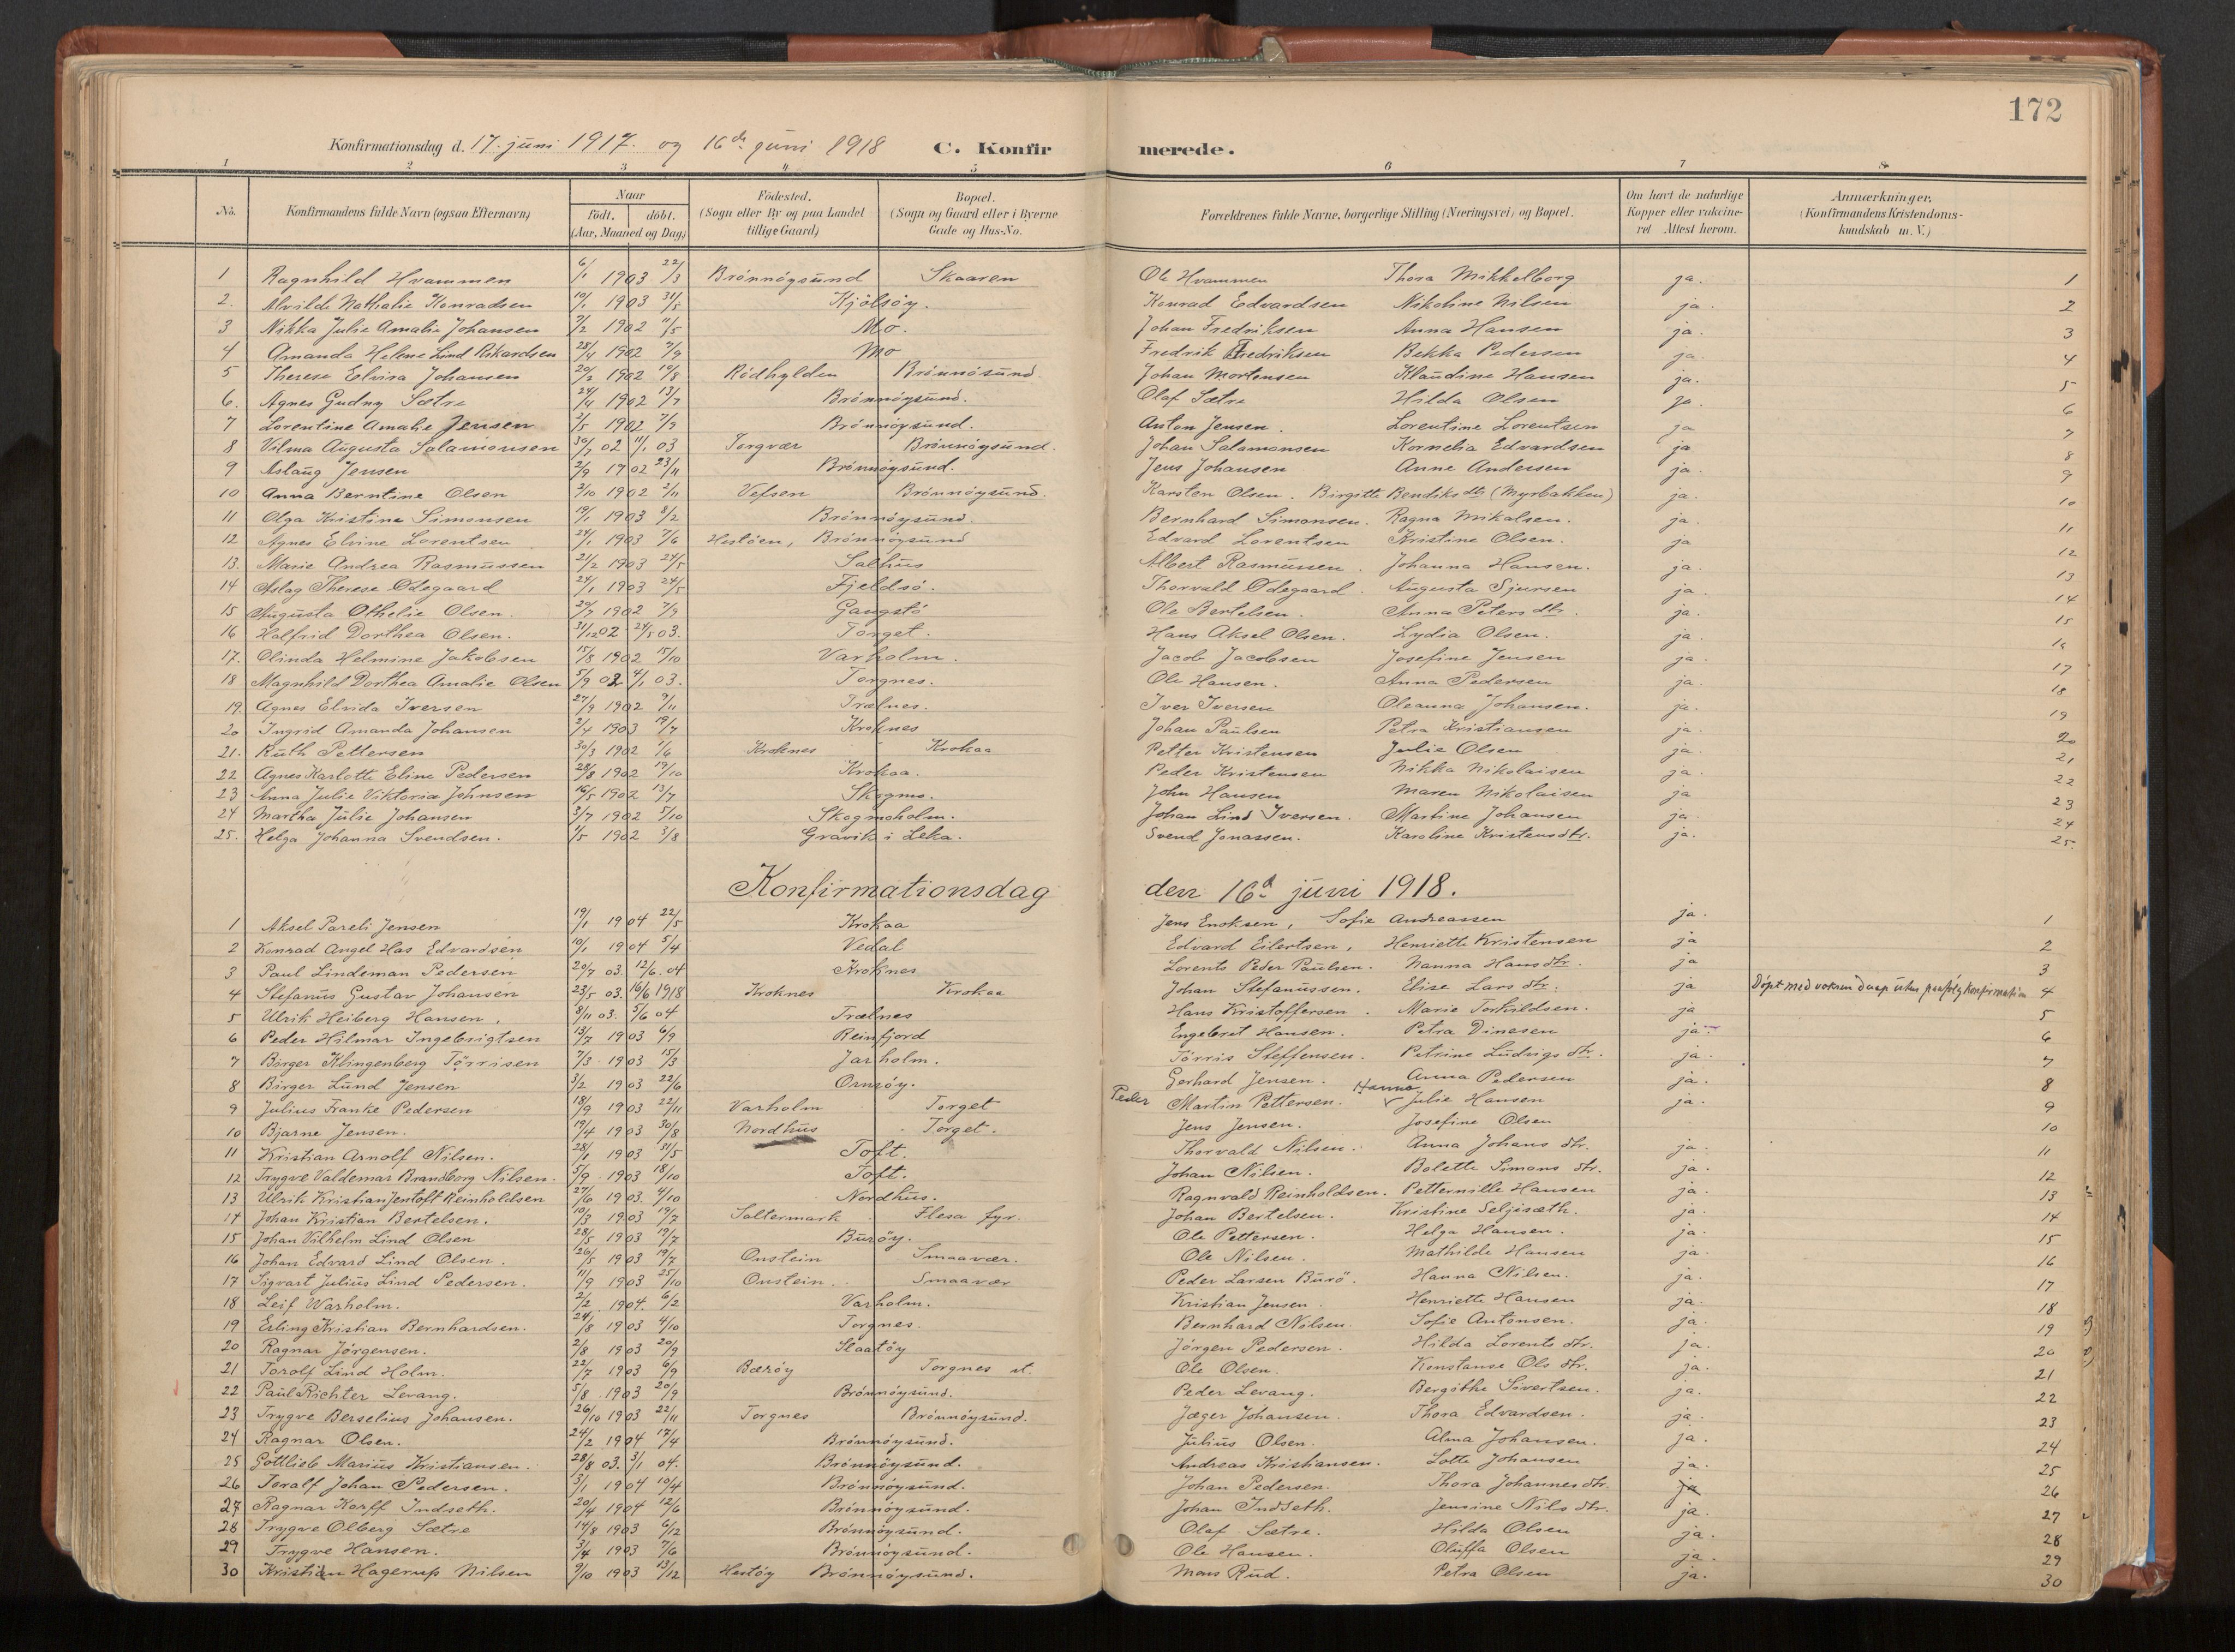 172
Konfirmationsdag d. 17. juni 1917. og 16de juni 1918 C. Konfirmerede.
1 2 3 4 5 6 7 8
No. Konfirmandens fulde Navn (ogsaa Efternavn) Naar født. døbt. (Aar, Maaned og Dag) Födested. (Sogn eller By og paa Landet tillige Gaard) Bopæl. (Sogn og Gaard eller i Byerne Gade og Hus-No. Forældrenes fulde Navne, borgerlige Stilling (Næringsvei) og Bopæl. Om havt de naturlige Kopper eller vakcineret Attest herom. Anmærkninger, (Konfirmandens Kristendomskundskab m. V.)
1 Ragnhild Hvammen 6/1 1903 22/3 Brönnöysund Skaaren Ole Hvammen Thora Mikkelborg ja. 1
2. Alvilde Nathalie Konradsen 10/1 1903 31/5 Kjölsöy. Konrad Edvardsen Nikoline Nilsen ja. 2
3 Nikka Julie Amalie Johansen 7/2 1902 11/5 Mo. Johan Fredriksen Anna Hansen ja. 3
4 Amanda Helene Lind Rikardsen 28/4 1902 7/9 Mo Fredrik Fredriksen Bekka Pedersen ja 4
5 Therese Elvira Johansen 20/2 1902 10/8 Rödhylden Brönnösund Johan Mortensen Klaudine Hansen ja. 5
6. Agnes Gudny Sætre 24/4 1902 13/7 Brönnöysund. Olaf Sætre Hilda Olsen ja. 6
7 Lorentine Amalie Jensen 2/5 1902 7/9 Brönnöysund. Anton Jensen. Lorentine Lorentsen ja 7
8 Vilma Augusta Salamonsen 30/7 02 11/1 03 Torgvær Brönnöysund. Johan Salamonsen Kornelia Edvardsen ja 8
9 Aslaug Jensen 2/9 1902 23/11 Brönnöysund. Jens Johansen Anne Andersen ja. 9
10 Anna Berntine Olsen 2/10 1902 2/11 Vefsen Brönnöysund. Karsten Olsen. Birgitte Bendiksdtr (Myrbakken) ja. 10
11 Olga Kristine Simonsen 19/1 1903 8/2 Brönnöysund. Bernhard Simonsen. Ragna Mikalsen. ja. 11
12 Agnes Elvine Lorentsen 24/1 1903 7/6 Hestöen, Brönnöysund Edvard Lorentsen Kristine Olsen. ja 12
13. Marie Andrea Rasmussen 21/2 1903 24/5 Salhus Albert Rasmussen. Johanna Hansen. ja. 13
14 Aslag Therese Ödegaard 24/1 1903 24/5 Fjeldsö. Thorvald Ödegaard. Augusta Sjursen ja. 14
15 Augusta Othelie Olsen. 29/7 1902 7/9 Gangstö Ole Bertelsen. Anna Petersdtr. ja. 15
16 Halfrid Dorthea Olsen. 31/12 02 24/5 03. Torget. Hans Aksel Olsen. Lydia Olsen. ja. 16
17. Olinda Helmine Jakobsen 15/8 1902 15/10 Varholm. Jacob Jacobsen Josefine Jensen ja. 17
18 Magnhild Dorthea Amalie Olsen 5/9 02 4/1 03. Torgnes. Ole Hansen. Anna Pedersen ja. 18
19. Agnes Elvida Iversen 27/9 1902 9/11 Trælnes. Iver Iversen Oleanna Johansen. ja. 19
20 Ingrid Amanda Johansen 2/4 1903 19/7 Kroknes Johan Paulsen Petra Kristiansen ja. 20
21. Ruth Pettersen 30/3 1902 1/6 Kroknes Krokaa Petter Kristensen Julie Olsen ja. 21
22 Agnes Karlotte Eline Pedersen 28/8 1902 19/10 Krokaa. Peder Kristensen Nikka Nikolaisen ja. 22
23 Anna Julie Viktoria Johnsen 16/5 1902 13/7 Skogmo. John Hansen Maren Nikolaisen ja 23
24 Martha Julie Johansen 3/7 1902 5/10 Skogmoholm. Johan Lind Iversen. Martine Johansen ja. 24
25. Helga Johanna Svendsen. 1/5 1902 3/8 Gravik i Leka. Svend Jonassen. Karoline Kristensdtr. ja. 25.
Konfirmationsdag den 16d juni 1918.
1 Aksel Pareli Jensen 19/1 1904 22/5 Krokaa Jens Enoksen, Sofie Andreassen ja. 1
2 Konrad Angel Has Edvardsen 10/1 1904 5/4 Vedal Edvard Eilertsen, Henriette Kristensen ja 2
3 Paul Lindeman Pedersen 20/7 03. 12/6. 04 Kroknes Lorents Peder Paulsen. Nanna Hansdtr. ja 3
4 Stefanus Gustav Johansen 23/5 03. 16/6 1918 Kroknes Krokaa Johan Stefanussen. Elise Larsdtr. ja Döpt med voksen daap uten paafölg konfirmation 4
5 Ulrik Heiberg Hansen. 8/11 03. 5/6 04 Trælnes Hans Kristoffersen. Marie Torkildsen. ja 5
6 Peder Hilmar Ingebrigtsen 13/7 1903 6/9 Reinfjord Engebret Hansen. Petra Dinesen ja 6
7 Birger Klingenberg Törrisen 7/3 1903 15/3 Jarholm. Törris Steffensen. Petrine Ludvigsdtr. ja. 7
8 Birger Lund Jensen 3/2 1903 22/6 Ornsöy. Gerhard Jensen. Anna Pedersen ja. 8
9 Julius Franke Pedersen 18/9 1903 22/11 Varholm Torget Peder Martin Pettersen. Hanna Julie Hansen ja. 9
10 Bjarne Jensen. 19/4 1903 30/8 Nordhus Torget. Jens Jensen. Josefine Olsen 10
11 Kristian Arnolf Nilsen. 28/1 1903 31/5 Toft. Thorvald Nilsen. Anna Johansdtr. ja. 11
12 Trygve Valdemar Brandborg Nilsen. 5/9 1903 18/10 Toft. Johan Nilsen. Bolette Simonsdtr. ja. 12
13 Ulrik Kristian Jentoft Reinholdsen 27/6 1903. 4/10 Nordhus. Ragnvald Reinholdsen. Petternille Hansen ja. 13
14 Johan Kristian Bertelsen. 10/3 1903 19/7 Saltermark Flesa fyr. Johan Bertelsen. Kristine Seljesæth. ja. 14
15 Johan Vilhelm Lind Olsen 28/5 1903 19/7 Buröy. Ole Pettersen. Helga Hansen. ja. 15
16 Johan Edvard Lind Olsen. 26/5 1903 19/7 Onstein Smaavær. Ole Nilsen. Mathilde Hansen ja. 16
17 Sigvart Julius Lind Pedersen. 11/9 1903 25/10 Onstein. Smaavær Peder Larsen Burö. Hanna Nilsen. ja. 17
18 Leif Warholm. 2/2 1904. 6/2 Varholm. Kristian Jensen. Henriette Hansen ja. 18
19 Erling Kristian Bernhardsen. 24/8 1903 4/10 Torgnes. Bernhard Nilsen. Sofie Antonsen. ja. 19
20 Ragnar Jörgensen. 2/8 1903 20/9 Slaatöy Jörgen Pedersen. Hilda Lorentsdtr. ja. 20
21 Torolf Lind Holm. 22/7 1903 6/9 Bæröy Torgnes Ole Olsen Konstanse Olsdtr. ja. 21
22 Paul Richter Levang. 5/8 1903 20/9 Brönnöysund. Peder Levang. Bergithe Sivertsen. ja. 22
23 Trygve Berselius Johansen. 26/10 1903 22/11 Torgnes Brönnöysund. Jæger Johansen. Thora Edvardsen. ja. 23
24 Ragnar Olsen. 24/2 1904 17/4 Brönnöysund. Julius Olsen. Alma Johansen. ja. 24
25 Gottlieb Marius Kristiansen. 28/8 03. 3/1 04. Brönnöysund. Andreas Kristiansen. Lotte Johansen ja. 25
26 Toralf Johan Pedersen. 3/1 1904 10/4 Brönnöysund. Johan Pedersen. Thora Johannesdtr. ja 26
27 Ragnar Korff Indseth. 20/4 1904 12/6 Brönnöysund. Johan Indseth. Jensine Nilsdtr. ja. 27
28 Trygve Olberg Sætre 14/8 1903 6/12 Brönnöysund. Olaf Sætre. Hilda Olsen ja. 28
29 Trygve Hansen. 3/4 1903 7/6 Brönnöysund. Ole Hansen. Oluffa Olsen ja. 29
30 Kristian Hagerup Nilsen 9/10 1903 13/12 Hestöy Brönnöysund. Mons Rud. Petra Olsen ja. 30